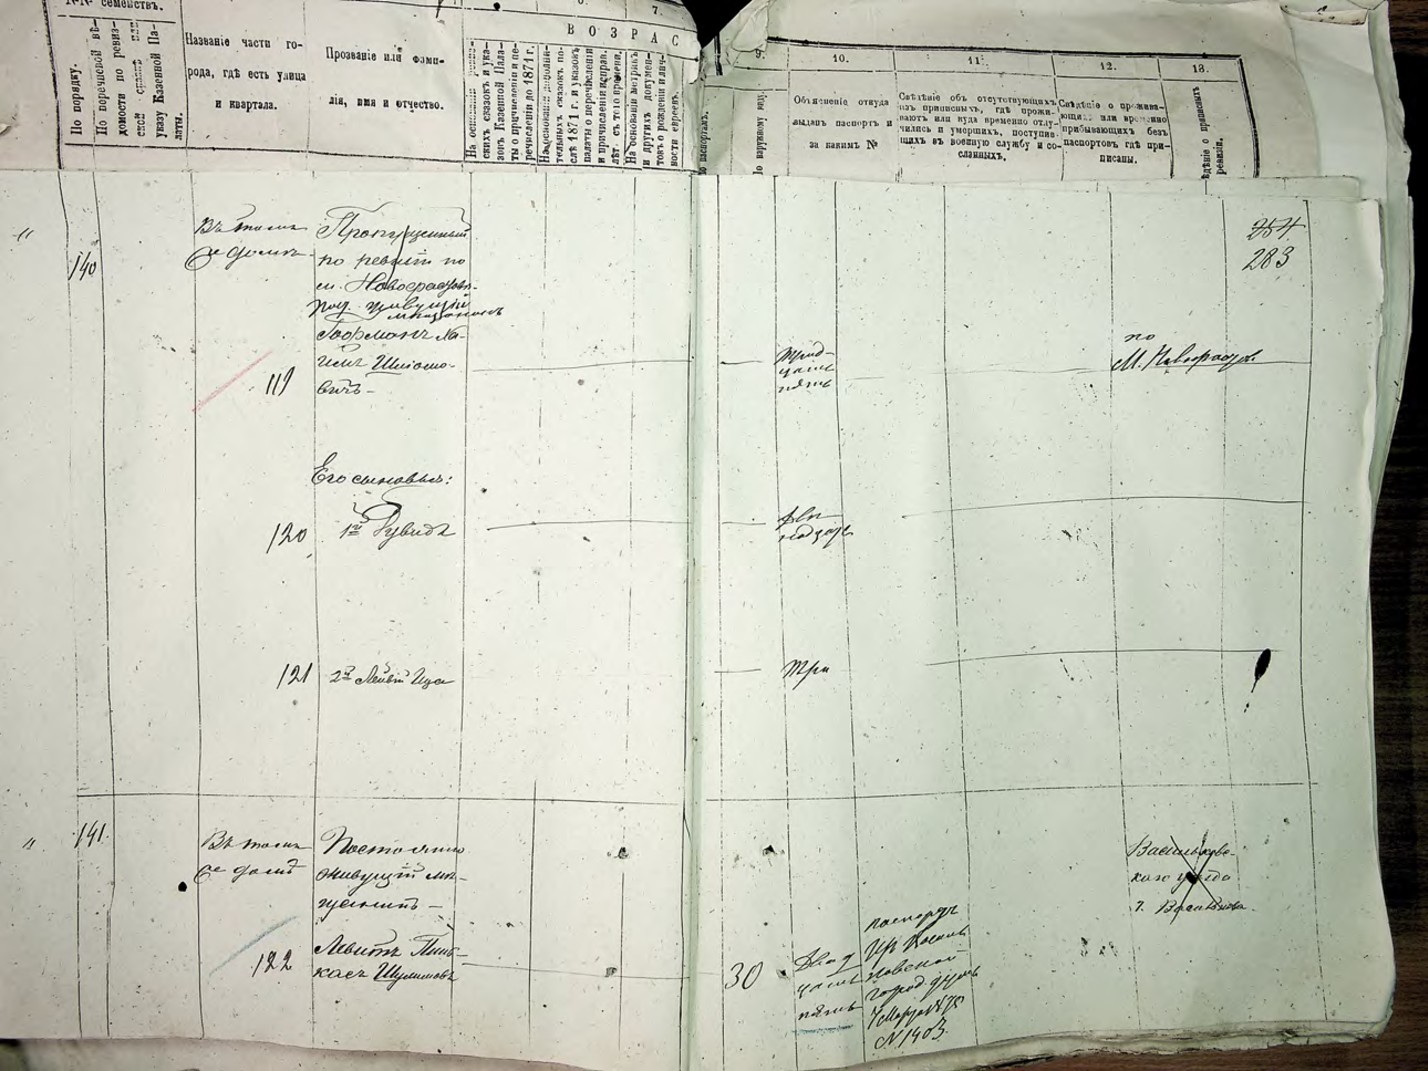 №№ семействъ.
По порядку.
По перечневой вѣ-
домости по ревиз-
ской сказкѣ или
указу Казенной Па-
латы.
Названіе части го-
рода, гдѣ есть улица
и квартала.
Прозваніе или фами-
лія, имя и отчество.
7.
ВОЗРАС
На основаніи ревиз-
скихъ сказокъ и ука-
зовъ Казенной Пала-
ты о причисленіи и пе-
речисленіи до 1871 г.
На основаніи дополни-
тельныхъ сказокъ по-
слѣ 1871 г. и указовъ
палаты о перечисленіи
и причисленіи и справ.
лѣт. съ того времени.
На основаніи метрикъ
и другихъ докумен-
товъ о рожденіи и лич-
ности евреевъ.
По паспортамъ.
9.
По наружному виду.
10.
Объясненіе откуда
выданъ паспортъ и
за какимъ №
11.
Свѣдѣніе объ отсутствующихъ
изъ приписныхъ, гдѣ прожи-
ваютъ или куда временно отлу-
чились и умершихъ, поступив-
шихъ въ военную службу и со-
сланныхъ.
12.
Свѣдѣніе о прожива-
ющихъ или временно
прибывающихъ безъ
паспортовъ гдѣ при-
писаны.
13.
ѣдѣніе о приписныхъ
ревизіи.
254.
283
"
140
Въ томъ
же домѣ
Пропущенный
по ревизіи по
м. Новофастов
жившій
мѣщанинъ
Гофманъ Ха-
имъ Шліомо-
вичъ –
119
трид-
цать
пять
по
М. Новофастов.
Его сыновья:
120
1й Рувидъ
две
надцать
121
2й Лейви Ица
три
"
141.
Въ томъ
же домѣ
Постоянно
живущій мѣ-
щанинъ –
122
Левитъ Пинь-
касъ Шулимовъ
30
Двад
цать
пять
паспортъ
изъ Василь
ковской
город думы
7 Марта 1875
№ 1403.
Васильковс-
каго уѣзда
г. Василькова.